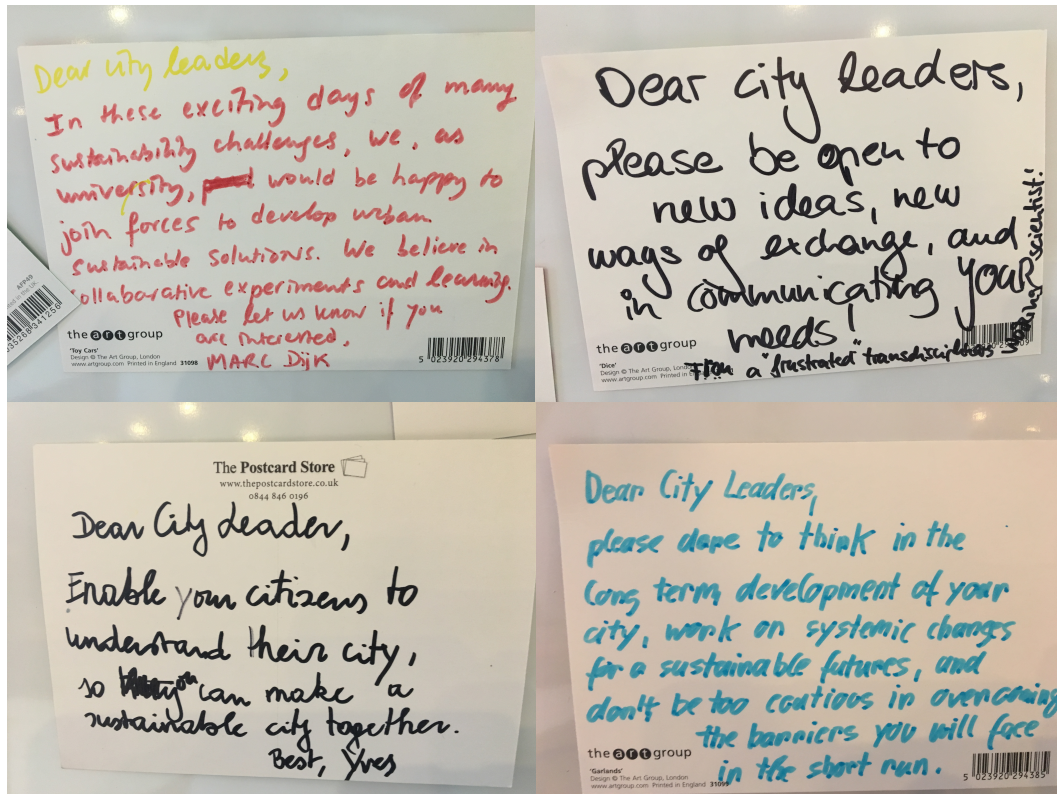 Dear city leaders,
In these exciting days of many
sustainability challenges, we, as
university, would be happy to
join forces to develop urban
sustainable solutions. We believe in
collaborative experiments and learning.
Please let us know if you
are interested,
MARC DIJK
the art group
'Toy Cars'
Design © The Art Group, London
www.artgroup.com Printed in England 31098
5 023920 294378
APP49
ted in the UK.
035268 341256
Dear city leaders,
please be open to
new ideas, new
ways of exchange, and
in communicating YOUR
needs!
From a "frustrated" transdisciplinary
scientist!
the art group
'Dice'
Design © The Art Group, Lond
www.artgroup.com Printed in En
The Postcard Store
www.thepostcardstore.co.uk
0844 846 0196
Dear City Leader,
Enable your citizens to
understand their city,
so you can make a
sustainable city together.
Best, Yves
Dear City Leaders,
please dare to think in the
long term development of your
city, work on systemic changes
for a sustainable futures, and
don't be too cautious in overcoming
the barriers you will face
in the short run.
the art group
'Garlands'
Design © The Art Group, London
www.artgroup.com Printed in England 31099
5 023920 294385